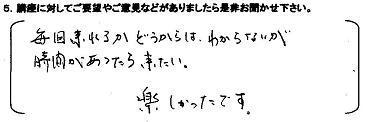 5. 講座に対してご要望やご意見などがありましたら是非お聞かせ下さい。
毎回来れるかどうからは、わからないが
時間があったら来たい。
楽しかったです。